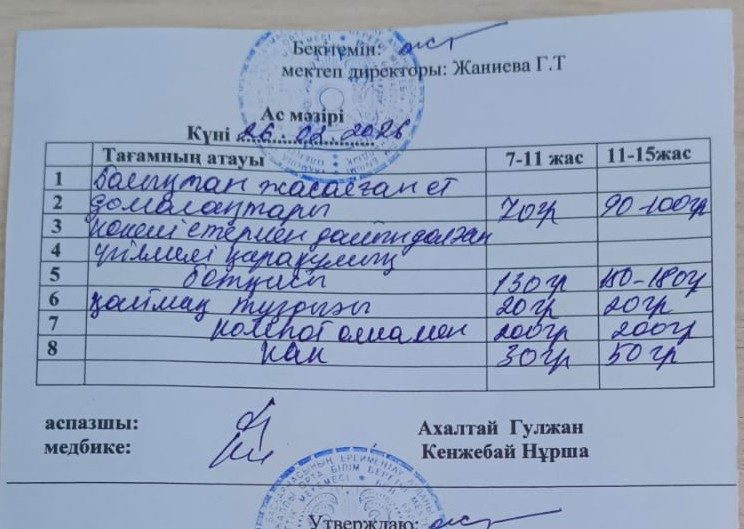 Бекітемін:
мектеп директоры: Жаниева Г.Т
Ас мәзірі
Күні 26.02.2026
Тағамның атауы 7-11 жас 11-15жас
1 Балықтан жасалған ет
2 домалақтары 70гр 90-100гр
3 көкөністермен дайындалған
4 үгілмелі қарақұмық
5 ботқасы 130гр 150-180гр
6 қаймақ тұздығы 20гр 20гр
7 компот алмамен 200гр 200гр
8 нан 30гр 50гр
аспазшы: Ахалтай Гулжан
медбике: Кенжебай Нұрша
Утверждаю: